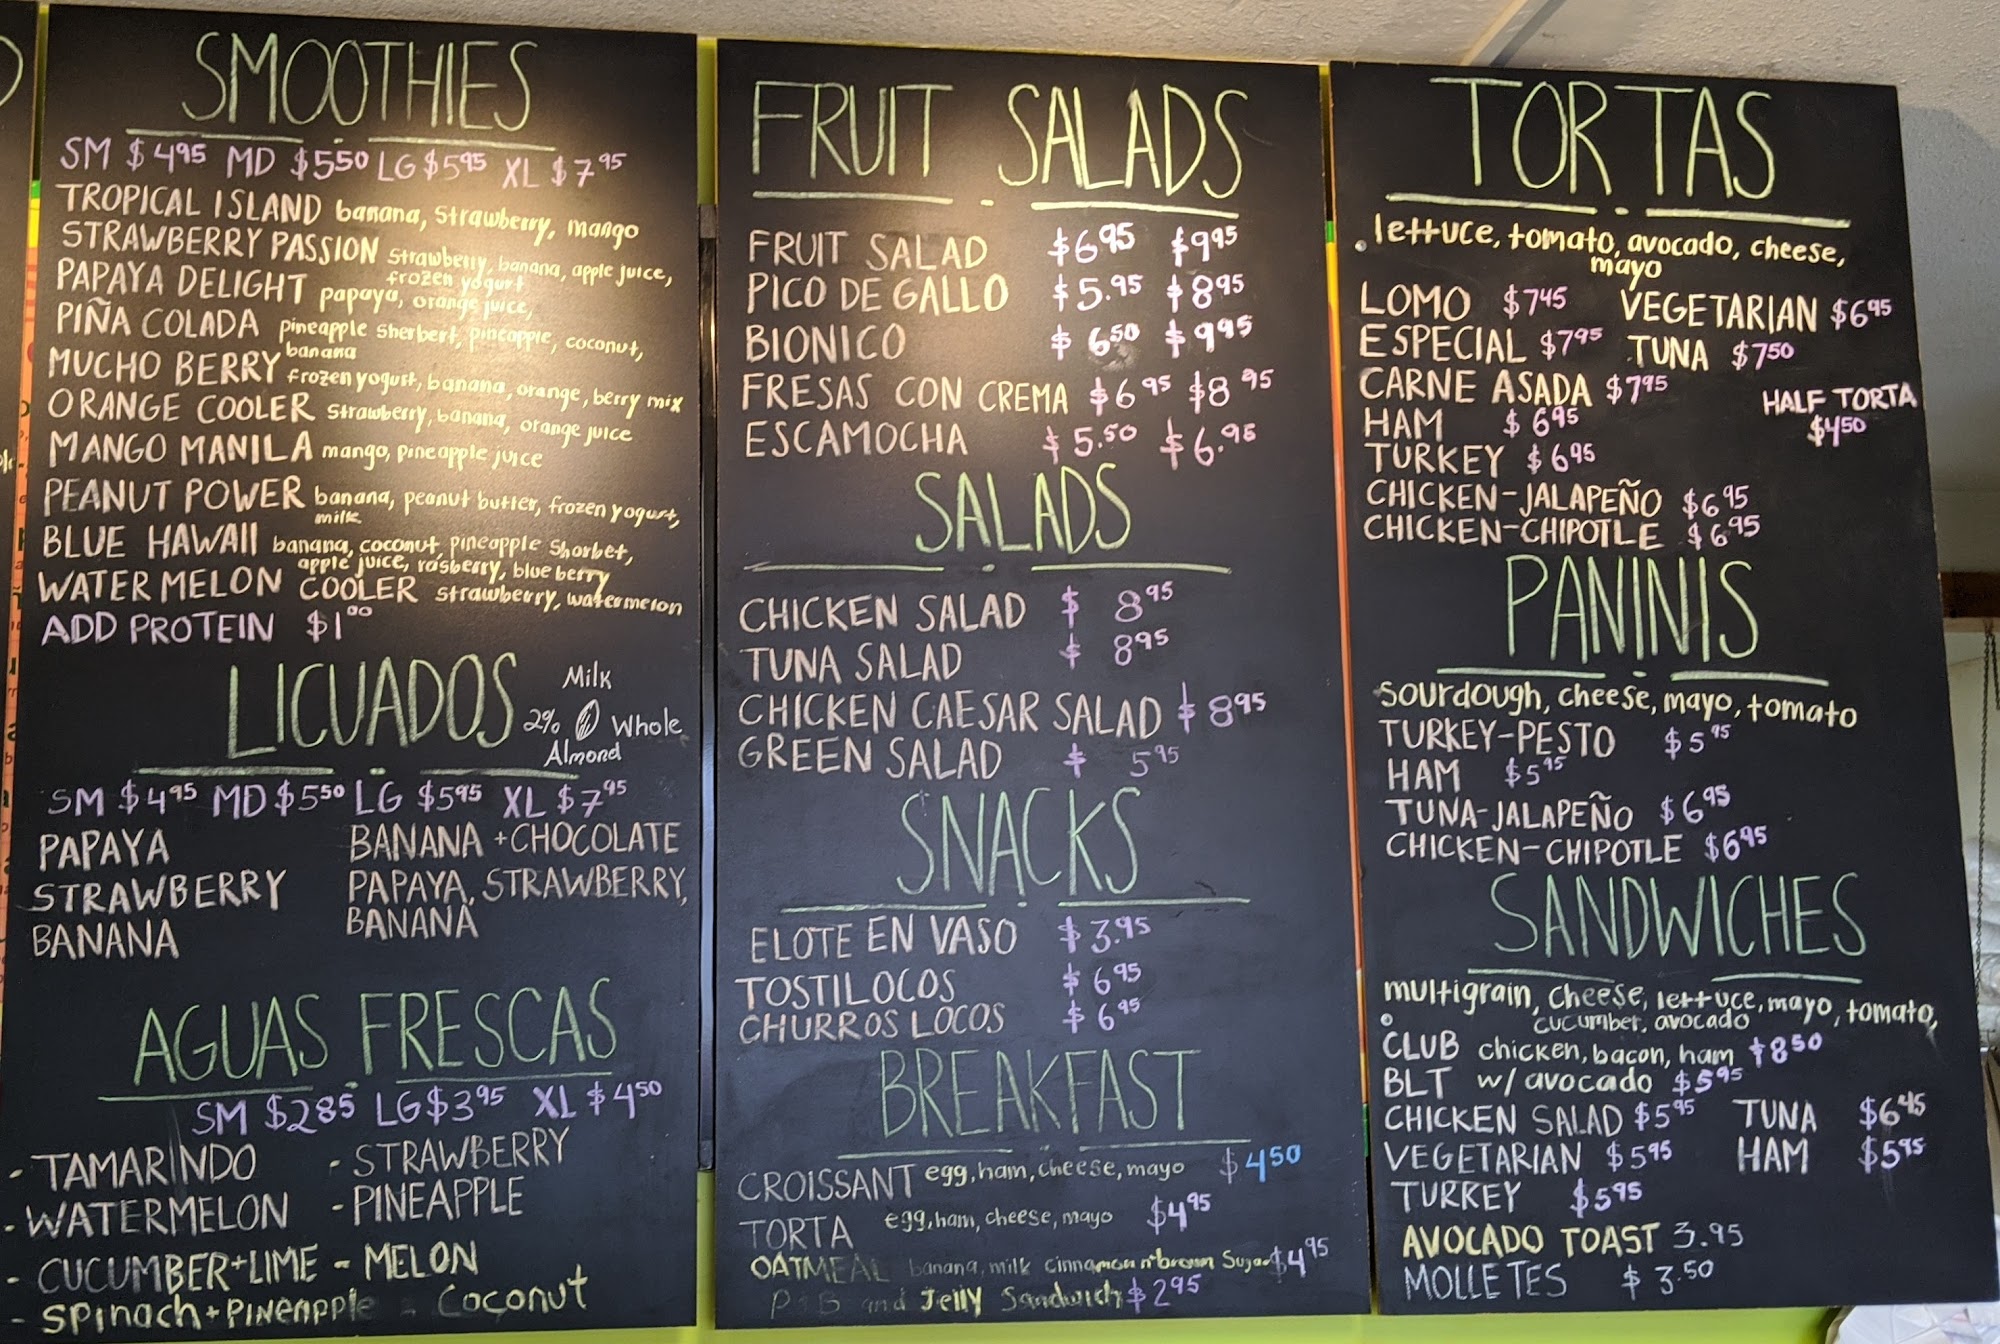 SMOOTHIES
SM $4.95 MD $5.50 LG $5.95 XL $7.95
TROPICAL ISLAND banana, strawberry, mango
STRAWBERRY PASSION strawberry, banana, apple juice,
frozen yogurt
PAPAYA DELIGHT papaya, orange juice,
PIÑA COLADA pineapple sherbert, pineapple, coconut,
banana
MUCHO BERRY frozen yogurt, banana, orange, berry mix
ORANGE COOLER strawberry, banana, orange juice
MANGO MANILA mango, pineapple juice
PEANUT POWER banana, peanut butter, frozen yogurt,
milk
BLUE HAWAII banana, coconut, pineapple shorbet,
apple juice, rasberry, blueberry
WATERMELON COOLER strawberry, watermelon
ADD PROTEIN $1.00
LICUADOS
Milk
2% Whole
Almond
SM $4.95 MD $5.50 LG $5.95 XL $7.95
PAPAYA BANANA + CHOCOLATE
STRAWBERRY PAPAYA, STRAWBERRY,
BANANA BANANA
AGUAS FRESCAS
SM $2.85 LG $3.95 XL $4.50
- TAMARINDO - STRAWBERRY
- WATERMELON - PINEAPPLE
- CUCUMBER+LIME - MELON
- Spinach+Pineapple - Coconut
FRUIT SALADS
FRUIT SALAD $6.95 $9.95
PICO DE GALLO $5.95 $8.95
BIONICO $6.50 $9.95
FRESAS CON CREMA $6.95 $8.95
ESCAMOCHA $5.50 $6.95
SALADS
CHICKEN SALAD $8.95
TUNA SALAD $8.95
CHICKEN CAESAR SALAD $8.95
GREEN SALAD $5.95
SNACKS
ELOTE EN VASO $3.95
TOSTILOCOS $6.95
CHURROS LOCOS $6.95
BREAKFAST
CROISSANT egg, ham, cheese, mayo $4.50
TORTA egg, ham, cheese, mayo $4.95
OATMEAL banana, milk cinnamon brown Sugar $4.95
P B and Jelly Sandwich $2.95
TORTAS
. lettuce, tomato, avocado, cheese,
mayo
LOMO $7.45 VEGETARIAN $6.95
ESPECIAL $7.95 TUNA $7.50
CARNE ASADA $7.95 HALF TORTA
HAM $6.95 $4.50
TURKEY $6.95
CHICKEN-JALAPEÑO $6.95
CHICKEN-CHIPOTLE $6.95
PANINIS
sourdough, cheese, mayo, tomato
TURKEY-PESTO $5.95
HAM $5.95
TUNA-JALAPEÑO $6.95
CHICKEN-CHIPOTLE $6.95
SANDWICHES
multigrain, cheese, lettuce, mayo, tomato,
cucumber, avocado
CLUB chicken, bacon, ham $8.50
BLT w/ avocado $5.95
CHICKEN SALAD $5.95 TUNA $6.45
VEGETARIAN $5.95 HAM $5.95
TURKEY $5.95
AVOCADO TOAST 3.95
MOLLETES $3.50